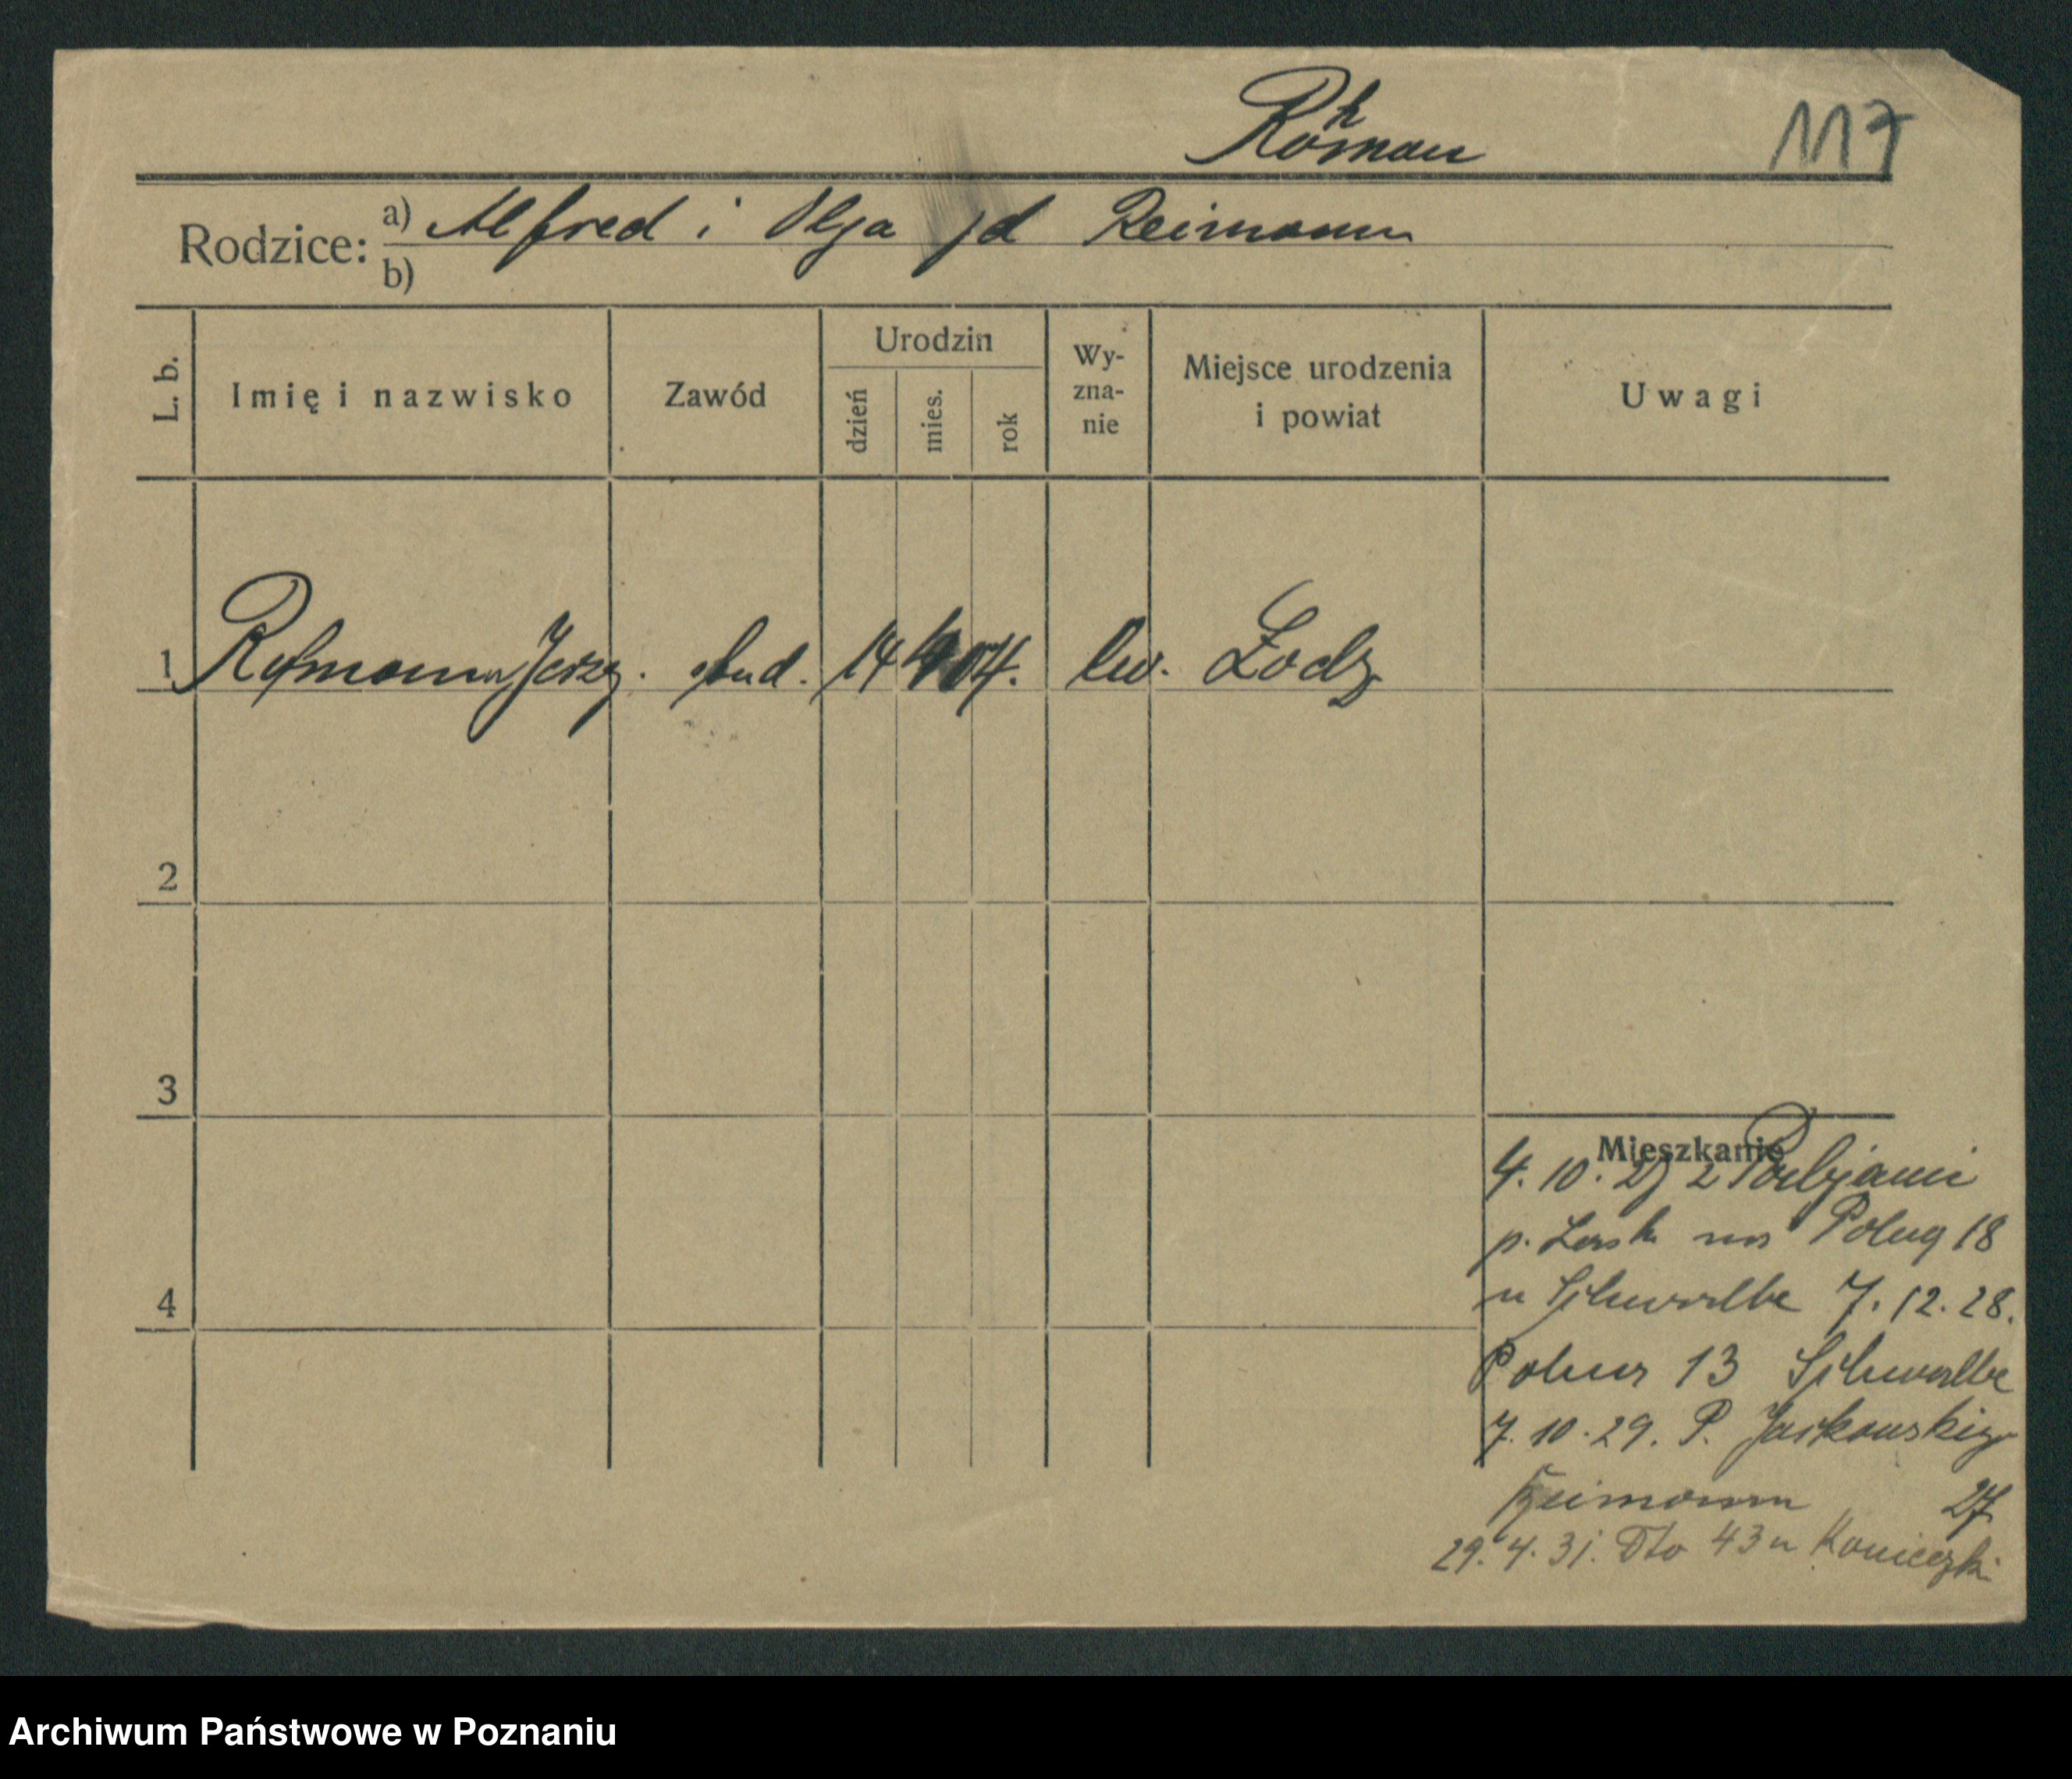 117
Rodzice: a) Alfred i Olga jd Reimann
b)
L. b.
Imię i nazwisko
Zawód
Urodzin
dzień
mies.
rok
Wy-
zna-
nie
Miejsce urodzenia
i powiat
Uwagi
1 Jerzy. stud. 14 04. Łodz
2
3
4
Mieszkanie
4. 10. 27 z Pabjanic
p. Lask na Polną 18
u Schwalbe 7. 12. 28.
Polna 13 Schwalbe
7. 10. 29. P. Jackowskiego
Reimann 27
29. 4. 31. Dto 43 u Konieczki
Archiwum Państwowe w Poznaniu